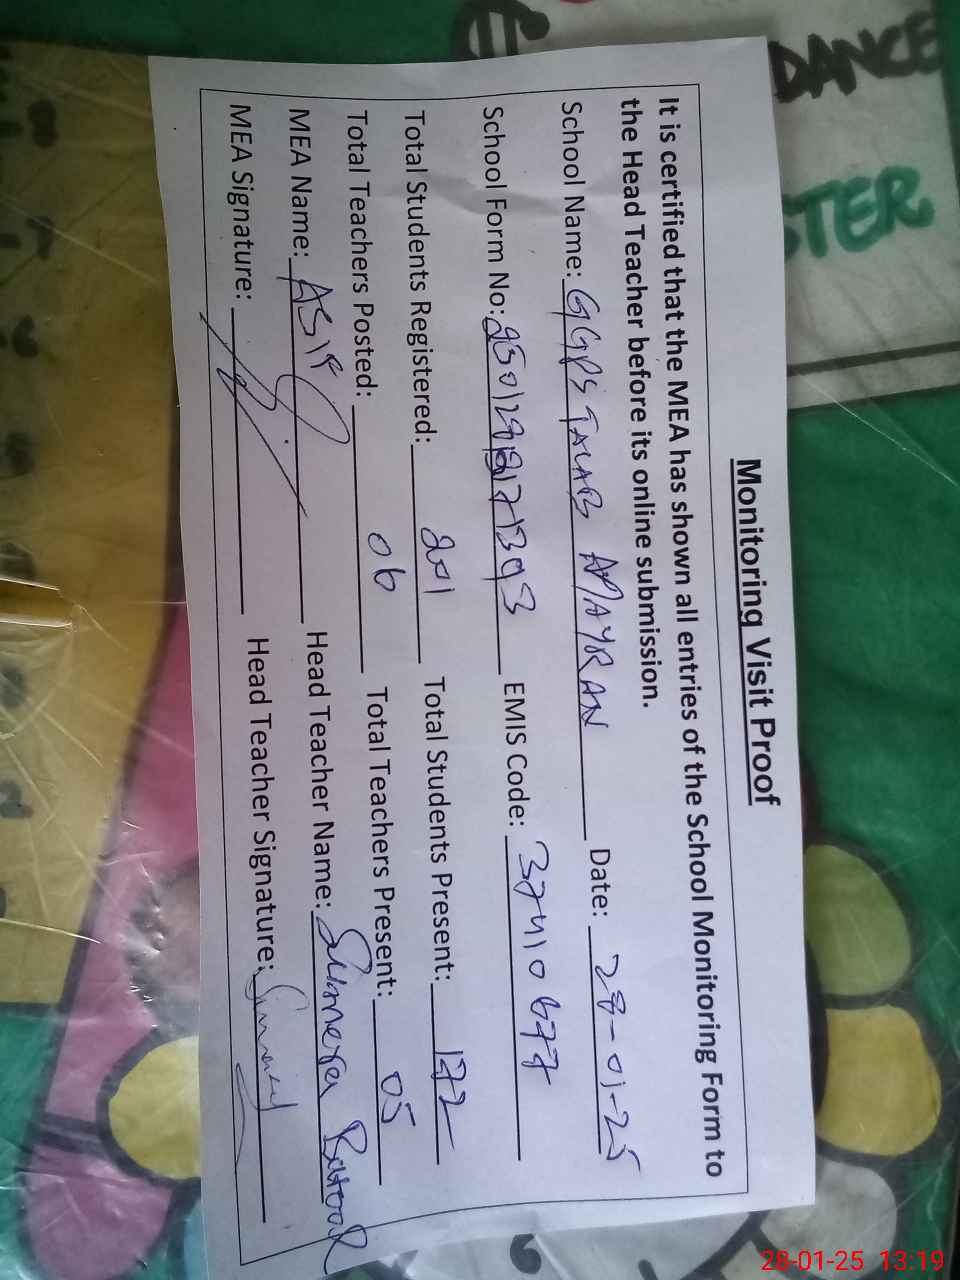 Monitoring Visit Proof
It is certified that the MEA has shown all entries of the School Monitoring Form to
the Head Teacher before its online submission.
School Name: GGPS TALAB Date: 28-01-25
School Form No: EMIS Code: 37410677
Total Students Registered: 201 Total Students Present: 172
Total Teachers Posted: 06 Total Teachers Present: 05
MEA Name: ASIF Head Teacher Name: Sumera Batool
MEA Signature: Head Teacher Signature:
DANCE
28-01-25 13:19